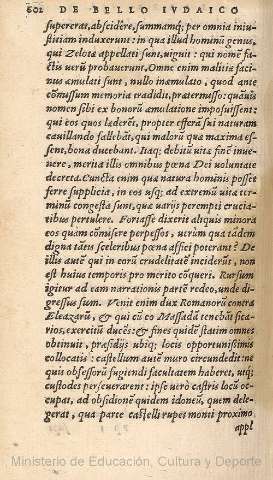 602 DE BELLO IVDAICO
supererat, absciderẽ, summamq́; per omnia iniu-
stitiam induxerunt: in qua illud hominũ genus,
qui Zelotæ appellati sunt, uiguit: qui nomẽ fa-
ctis uerũ probauerunt. Omne enim malitiæ faci-
nus æmulati sunt, nullo inæmulato, quod ante
cõmissum memoria tradidit, prætermisso: quãuis
nomen sibi ex bonorũ æmulatione imposuissent:
qui eos quos læderẽt, propter efferā sui naturam
cauillando fallebãt, qui malorũ quæ maxima es-
sent, bona ducebant. Itaq; debitũ uitæ finẽ inue-
nere, merita illis omnibus pœna Dei voluntate
decreta. Cuncta enim quæ natura hominis posset
ferre supplicia, in eos usq; ad extremũ uitæ ter-
minũ congesta sunt, quæ uarijs perempti crucia-
tibus pertulere. Fortasse dixerit aliquis minora
eos quàm cõmisere perpessos, utrùm quæ tãdem
digna tãtis sceleribus pœna affici poterant? De
illis autẽ qui in eorũ crudelitatẽ inciderũt, non
est huius temporis pro merito cõqueri. Rursum
igitur ad eam narrationis partẽ redeo, unde di-
gressus sum. Venit enim dux Romanorũ contra
Eleazarũ, & qui cũ eo Massadã tenebãt sica-
rios, exercitũ ducẽs: & fines quidẽ statim omnes
obtinuit, præsidijs ubiq; locis opportunissimis
collocatis: castellum autẽ muro circundedit: ne
quis obsessorũ fugiendi facultatem haberet, utq;
custodes perseuerarent: ipse uerò castris locũ oc-
cupat, ad obsidionẽ quidem idoneũ, quem dele-
gerat, qua parte castelli rupes monti proximo
appl
Ministerio de Educación, Cultura y Deporte